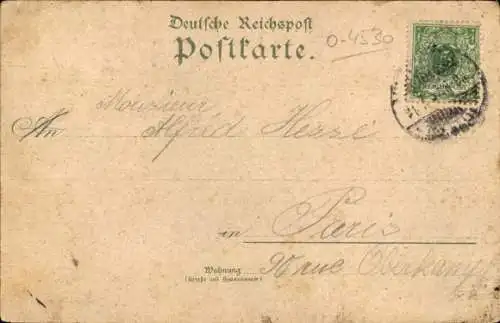 Deutsche Reichspost
Postkarte.
0-4530
Monsieur
An Alfred Hesse
in Paris
Wohnung
(Straße und Hausnummer)
90 rue Oberkampf